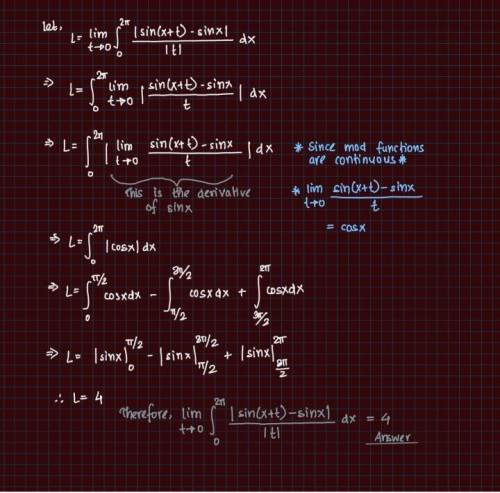 let,
L = lim_{t→0} ∫_0^{2π} |sin(x+t) - sinx| / |t| dx
⇒ L = ∫_0^{2π} lim_{t→0} | (sin(x+t) - sinx) / t | dx
⇒ L = ∫_0^{2π} | lim_{t→0} (sin(x+t) - sinx) / t | dx
This is the derivative
of sinx
* Since mod functions
are continuous *
* lim_{t→0} (sin(x+t) - sinx) / t
= cosx
⇒ L = ∫_0^{2π} |cosx| dx
⇒ L = ∫_0^{π/2} cosxdx - ∫_{π/2}^{3π/2} cosx dx + ∫_{3π/2}^{2π} cosxdx
⇒ L = |sinx|_0^{π/2} - |sinx|_{π/2}^{3π/2} + |sinx|_{3π/2}^{2π}
∴ L = 4
Therefore, lim_{t→0} ∫_0^{2π} |sin(x+t) - sinx| / |t| dx = 4
Answer